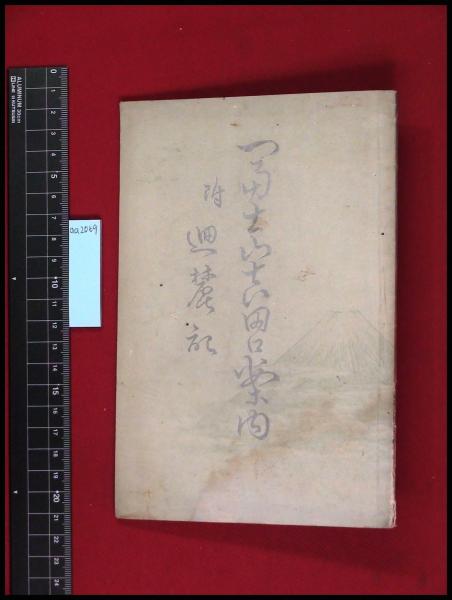 富士山吉田口案内
附 廻麓記
aa2069
ALUMINUM 30cm
0
1
2
3
4
5
6
7
8
9
10
11
12
13
14
15
16
17
18
19
20
21
22
23
24